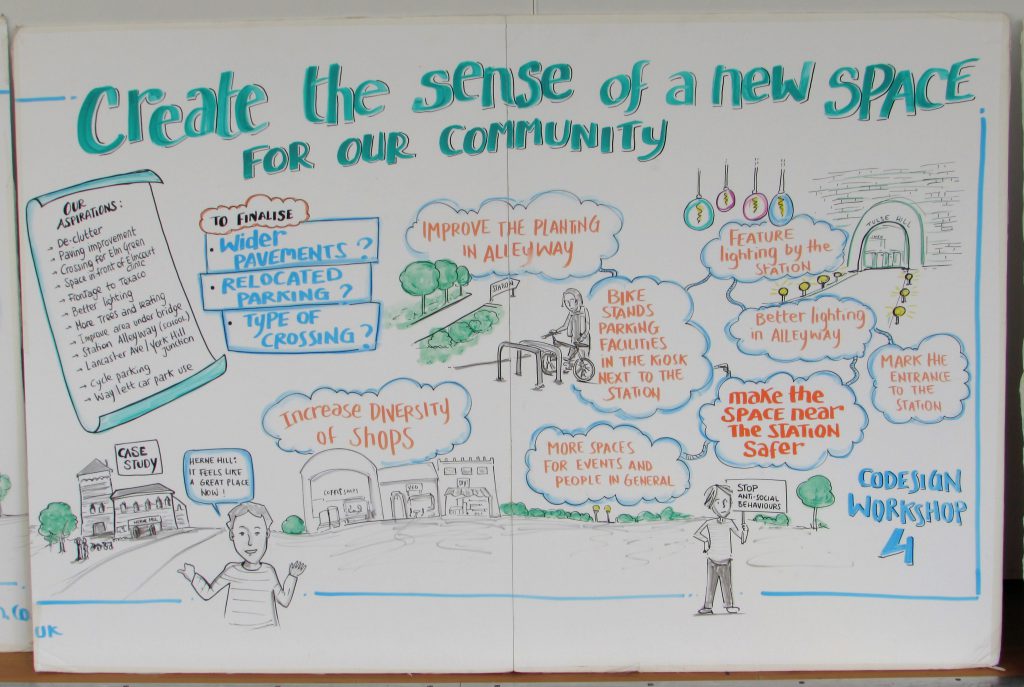 Create the sense of a new SPACE
FOR OUR COMMUNITY
OUR
ASPIRATIONS:
→ De-clutter
→ Paving improvement
→ Crossing for Elm Green
→ Space in front of Elmcourt
clinic
→ Frontage to Texaco
→ Better lighting
→ More Trees and seating
→ Improve area under bridge
→ Station Alleyway (school)
→ Lancaster Ave / York Hill
junction
→ Cycle parking
→ Way lett car park use
TO FINALISE
• Wider
PAVEMENTS?
• RELOCATED
PARKING?
• TYPE OF
CROSSING?
IMPROVE THE PLANTING
IN ALLEYWAY
STATION
BIKE
STANDS
PARKING
FACILITIES
IN THE KIOSK
NEXT TO THE
STATION
FEATURE
lighting by the
STATION
TULSE HILL
Better lighting
in ALLEYWAY
MARK the
ENTRANCE
TO THE
STATION
make the
SPACE near
The STATION
Safer
INCREASE DIVERSITY
OF SHOPS
MORE SPACES
FOR EVENTS AND
PEOPLE IN GENERAL
CASE
STUDY
HERNE HILL
HERNE HILL:
IT FEELS LIKE
A GREAT PLACE
NOW!
STOP
ANTI-SOCIAL
BEHAVIOURS
CODESIGN
WORKSHOP
4
UK